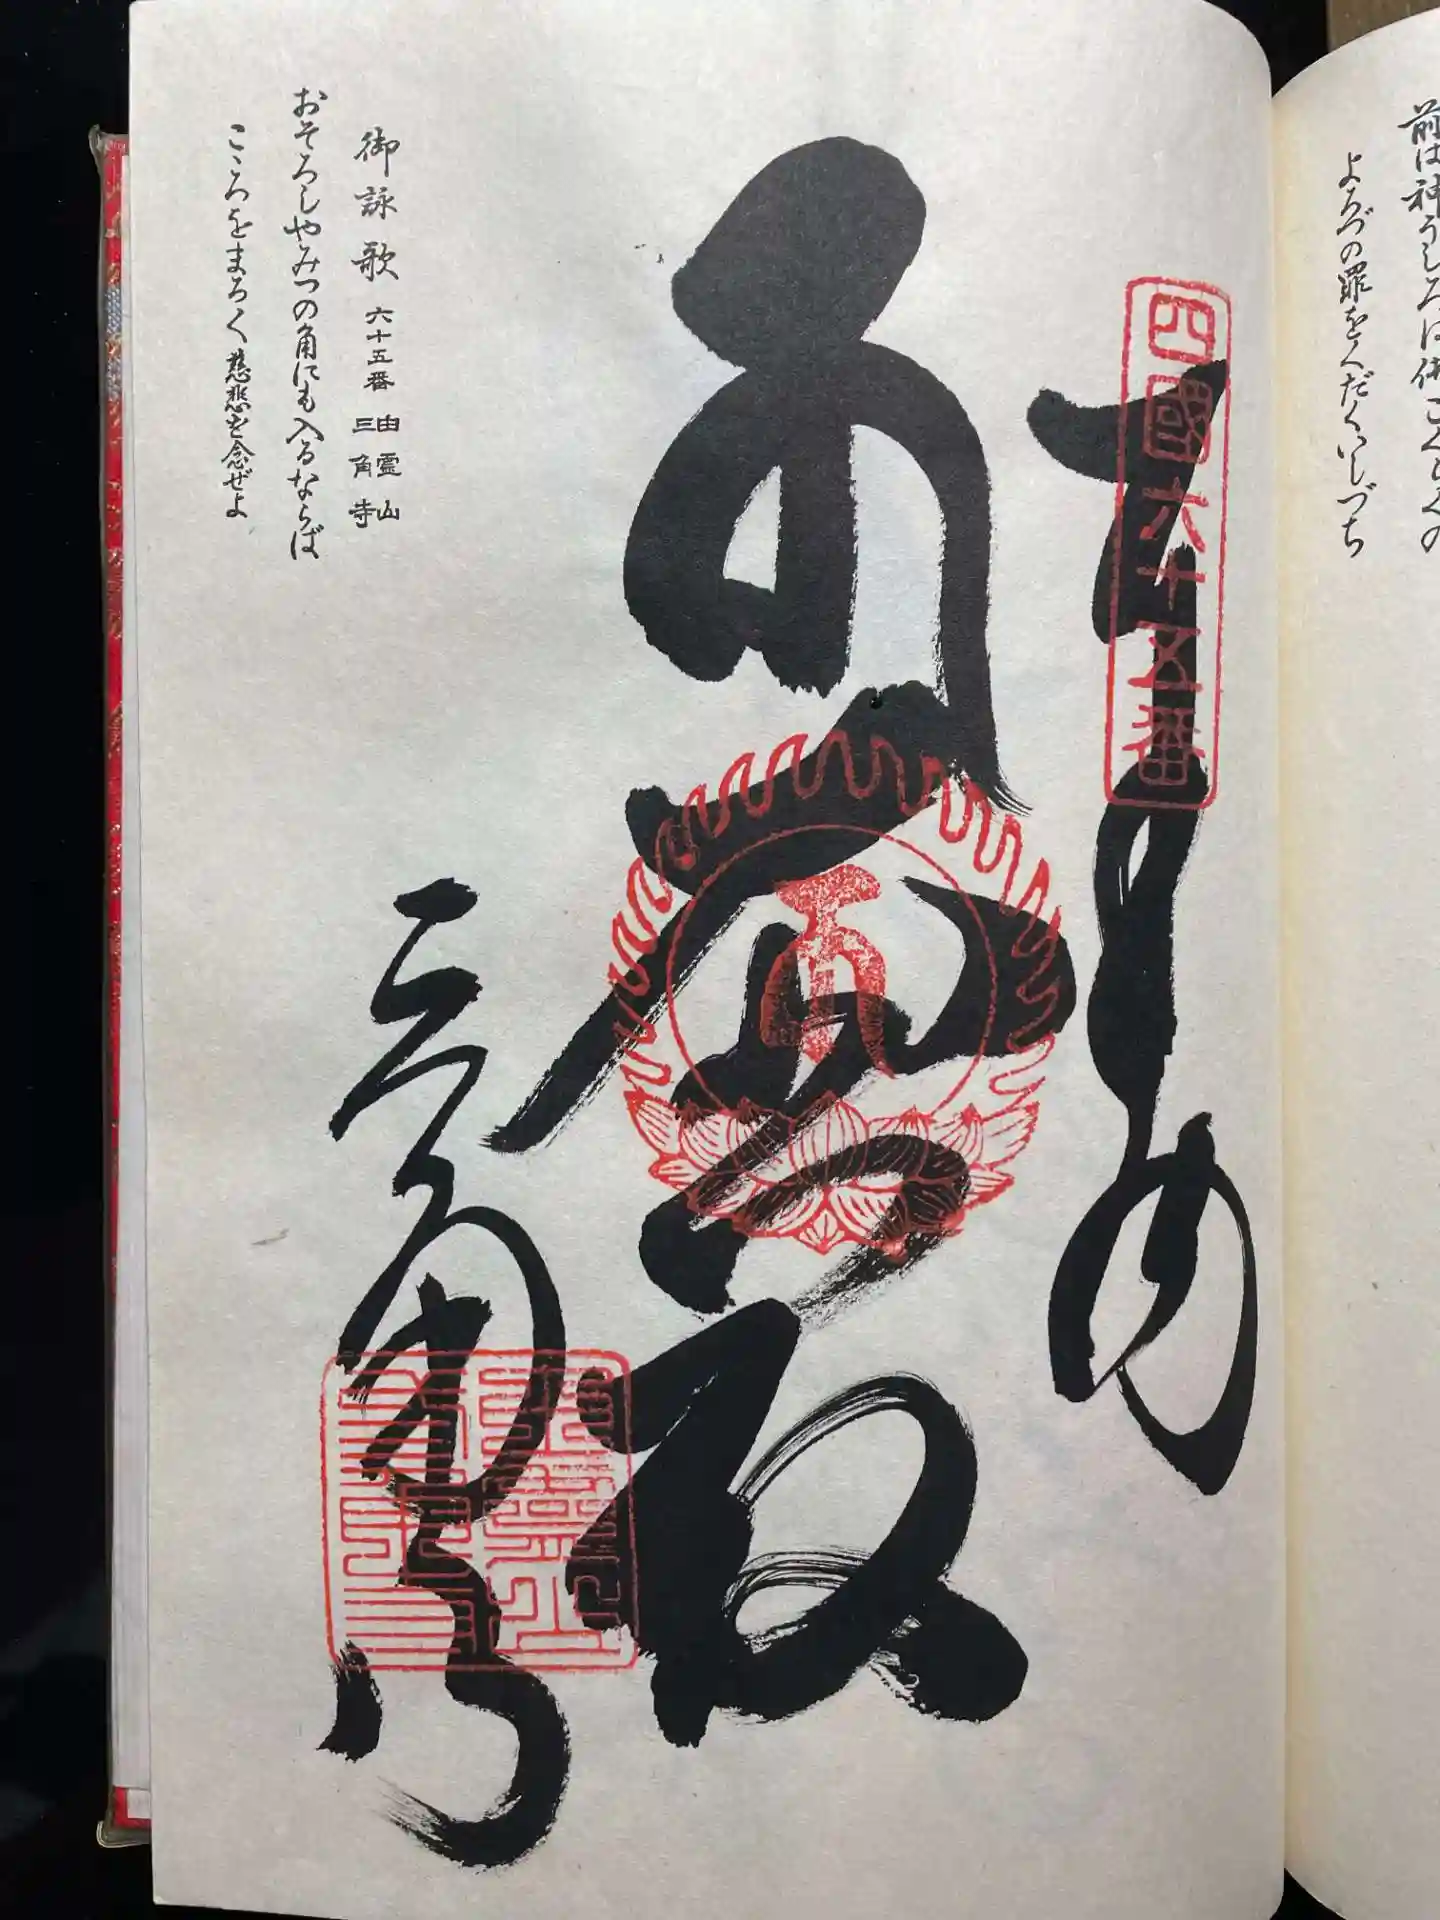 前は神うしろは佛ごくらくの
よろづの罪をくだくいしづち
四國六十五番
奉納
三角寺
御詠歌 六十五番 由霊山 三角寺
おそろしやみつの角にも入るならば
こゝろをまろく慈悲を念ぜよ